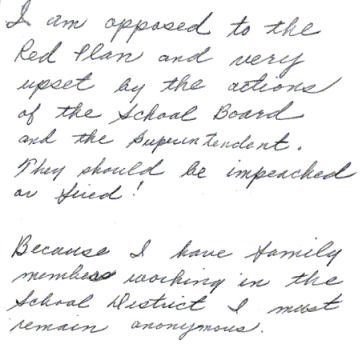 I am opposed to the
Red Plan and very
upset by the actions
of the School Board
and the Superintendent.
They should be impeached
or fired!
Because I have family
members working in the
School District I must
remain anonymous.